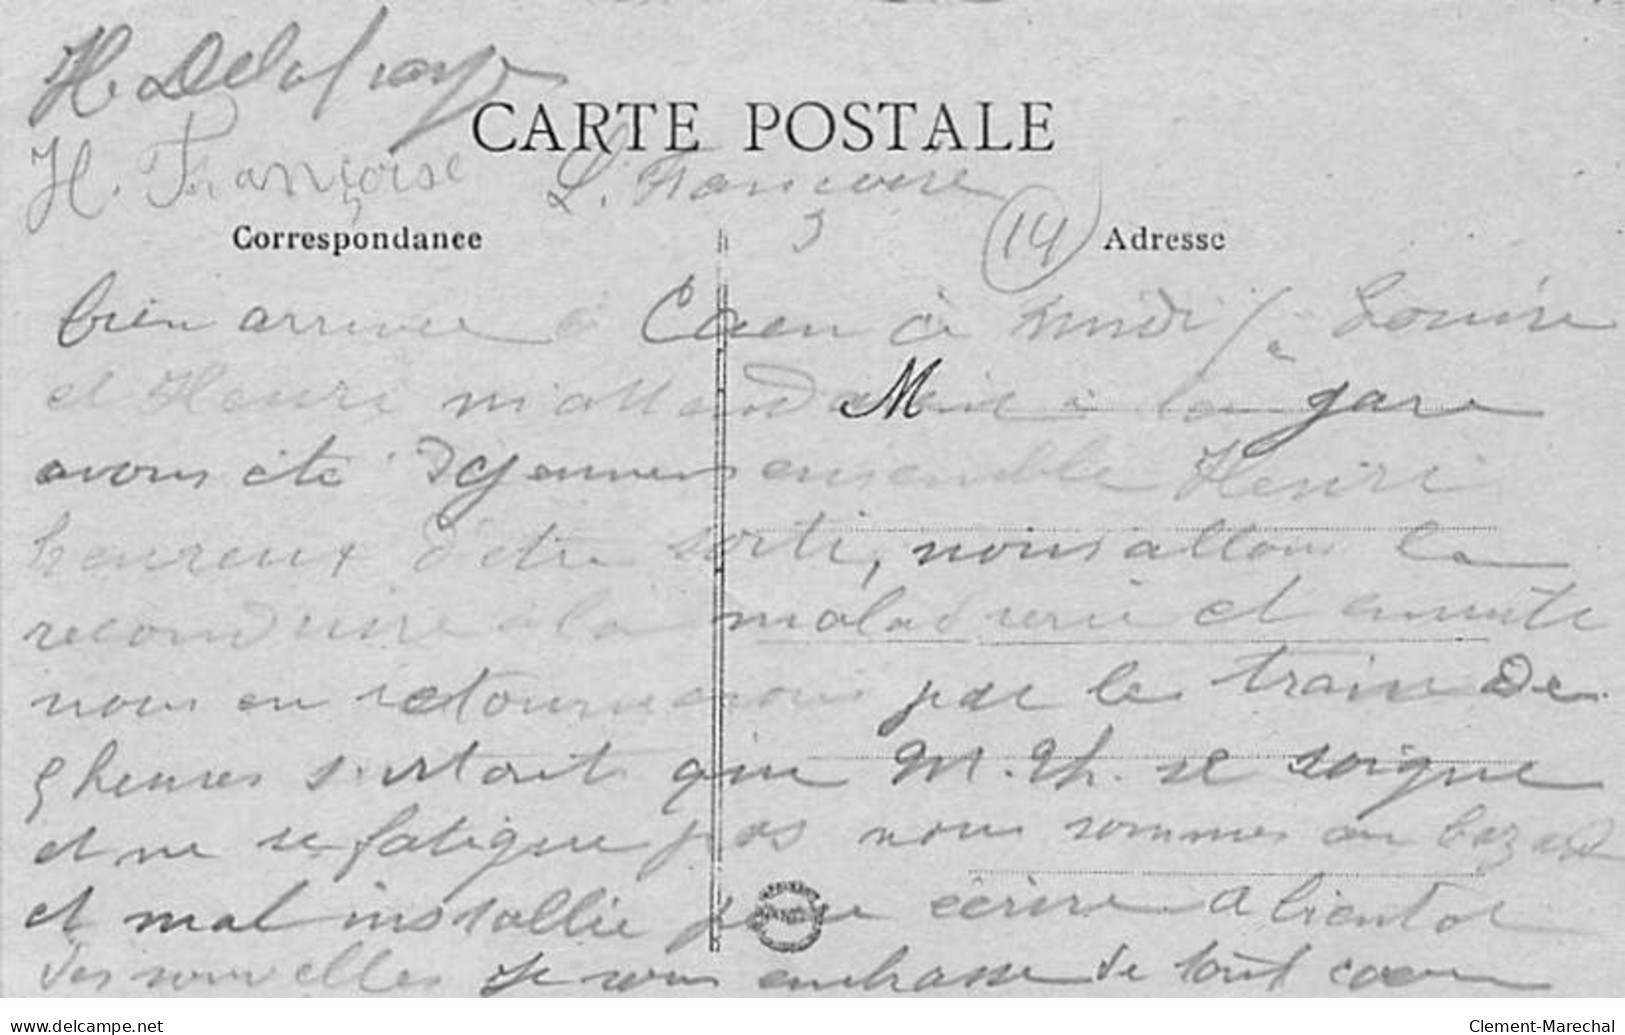 H. Delafraye
CARTE POSTALE
H. Françoise L. Françoise
Correspondance 14 Adresse
bien arrivée à Caen à midi Louise
et Henri m'attendaient à la gare
M
avons été déjeuner ensemble Henri
heureux d'être sorti, nous allons le
reconduire à la maladrerie et ensuite
nous en retournerons par le train de
9 heures surtout que M. Th. se soigne
et ne se fatigue pas nous sommes au bazar
et mal installée pour écrire a bientot
des nouvelles je vous embrasse de tout coeur
www.delcampe.net Clement-Marechal